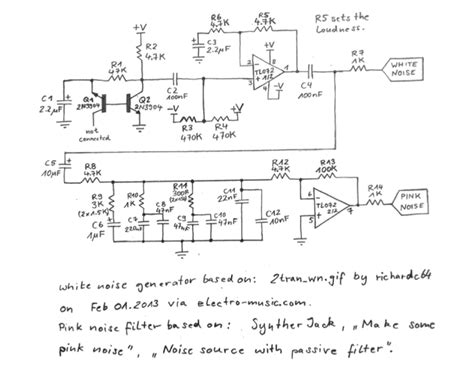 R6
4.7K
R5
4.7K
R5 sets the
Loudness.
+V
R2
4.7K
C3
2.2µF
+V
R1
47K
TL072
1/2
2
3
8
1
4
-V
C4
100nF
R7
1K
WHITE
NOISE
C1
2.2µF
Q1
2N3904
Q2
2N3904
C2
100nF
not
connected
-V
+V
R3
470K
R4
470K
C5
10µF
R8
4.7K
R12
4.7K
R13
100K
R9
3K
(2x1.5K)
R10
1K
R11
300Ω
C6
1µF
C7
220nF
C8
47nF
C9
47nF
C10
47nF
C11
22nF
C12
10nF
6
5
7
TL072
2/2
R14
1K
PINK
NOISE
white noise generator based on: 2tran_wn.gif by richardc64
on Feb 01.2013 via electro-music.com.
Pink noise filter based on: Synther Jack, „Make some
pink noise”, „Noise source with passive filter”.